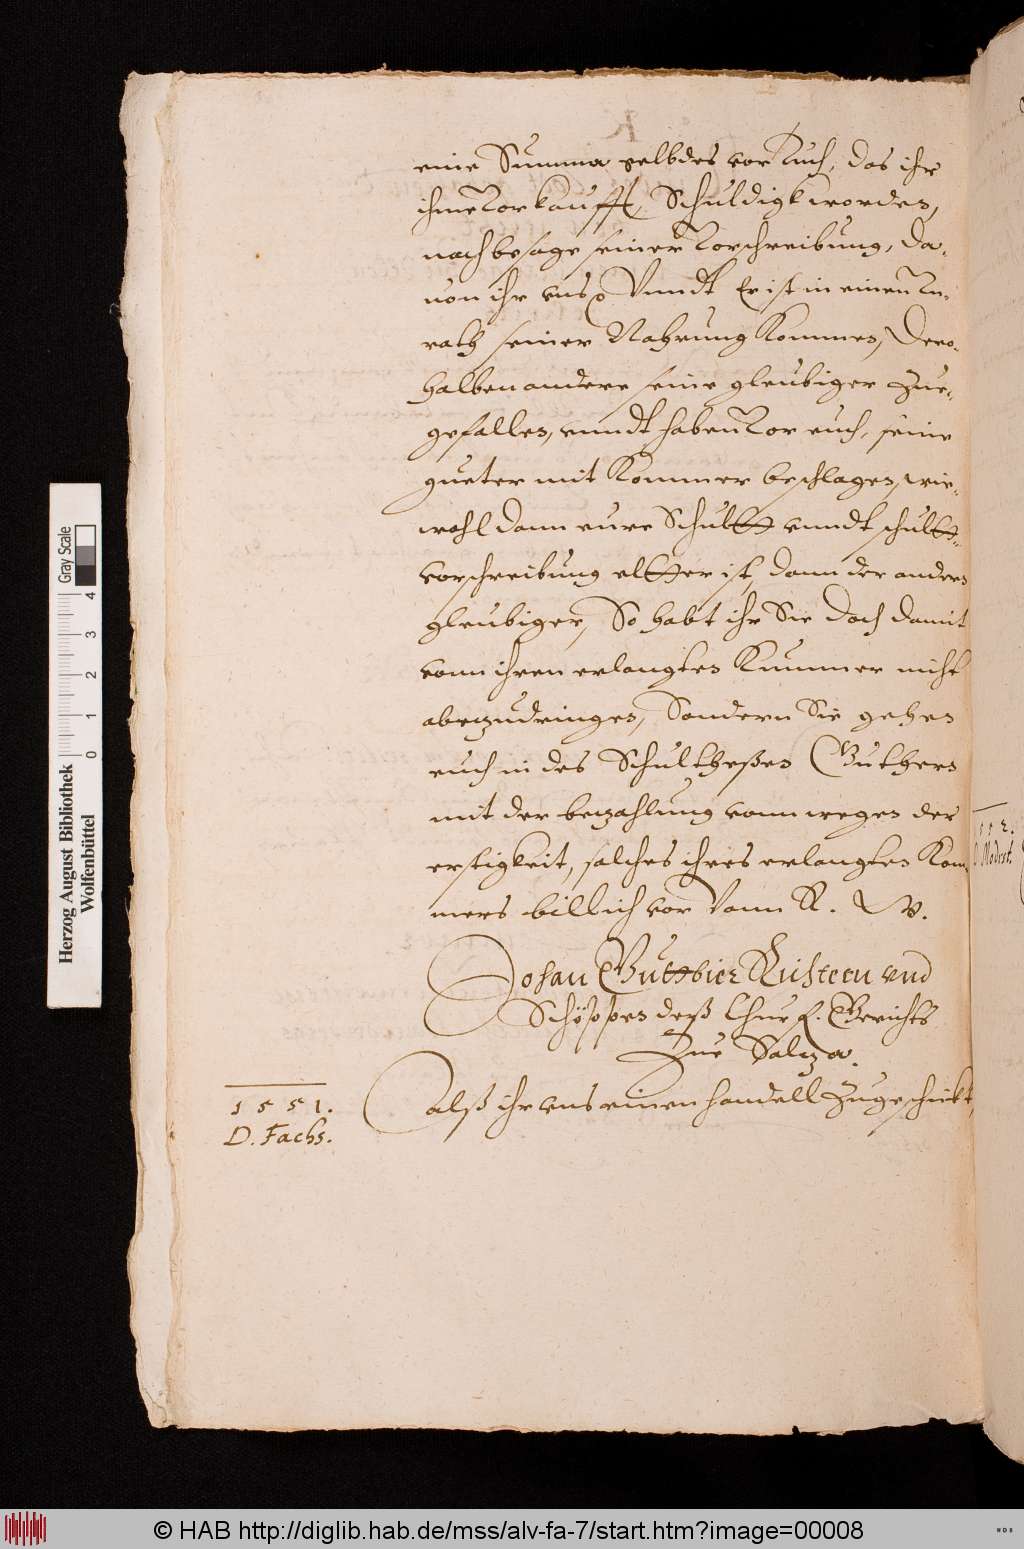 eine Summa geldes vor Tuch, das ihr
ihme vorkaufft, Schuldigk worden,
nach besage seiner vorschreibung, da-
von ihr uns Vnndt Er ist in einen vn-
rath seiner Nahrung kommen, Dero-
halben andere seine gleubiger zue-
gefallen, vnndt haben vor euch, seine
gueter mit Kommer beschlagen, wie-
wohl dann eure Schultt vnndt schultt-
vorschreibung eltter ist, dann der andern
gleubiger, So habt ihr Sie doch damit
vonn ihren erlangten Kummer nicht
abezudringen, Sondern Sie gehen
euch in des Schultheßen Guthern
mit der bezahlung vonn wegen der
erstigkeit, solches ihres erlangten Kom-
mers billich vor Vonn R. W.
Johan Gutbier Richtern vnd
Schöppen deß Churf. Gerichts
Zue Salza.
1551.
D. Fachs.
Alß ihr vns einen handell zugeschickt,
152.
D. Modest.
Herzog August Bibliothek
Wolfenbüttel
0 1 2 3 4
Gray Scale
© HAB http://diglib.hab.de/mss/alv-fa-7/start.htm?image=00008